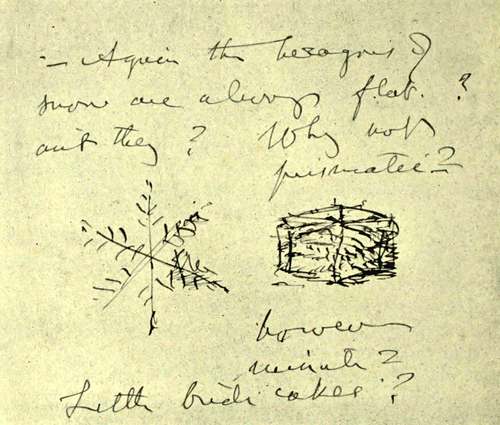 – Again the hexagons of
snow are always flat. ?
ain't they ? Why not
prismatic – ?
however
minute ?
Little bride cakes ?